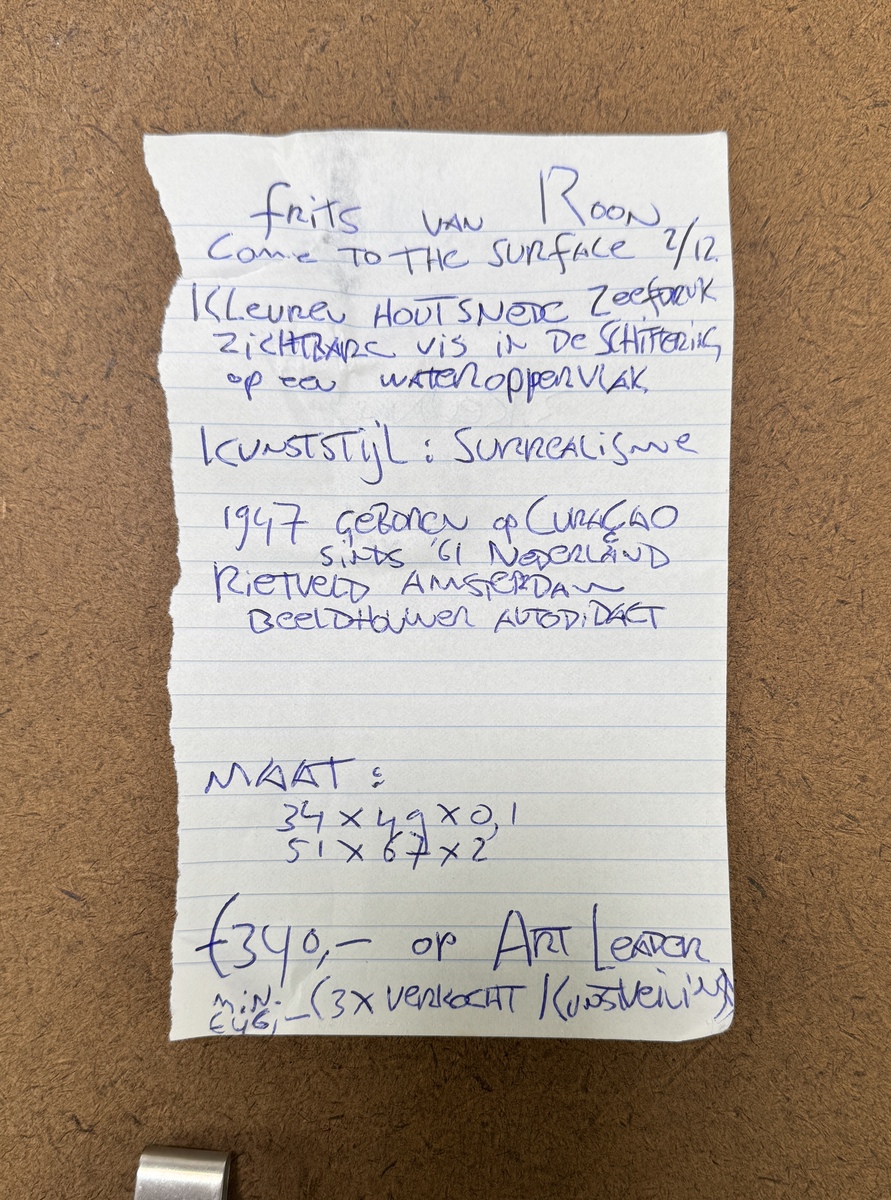 frits van Roon
Come to the surface 2/12
Kleuren houtsnede zeefdruk
zichtbare vis in de schittering
op een wateroppervlak
Kunststijl: Surrealisme
1947 geboren op Curaçao
sinds '61 Nederland
Rietveld Amsterdam
Beeldhouwer autodidact
MAAT:
34 x 49 x 0,1
51 x 67 x 2
€340,— op Art Leader
min. (3x verkocht Kunstveiling)
€46,—